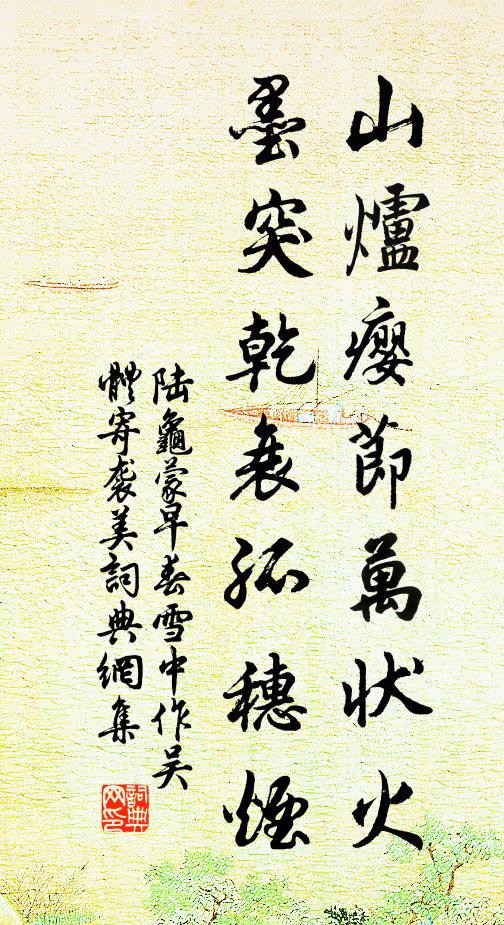 山爐癭節萬狀火
墨突乾衰孤穗煙
陸龜蒙早春雪中作吳
體寄襲美詞典網集
詞典
网印